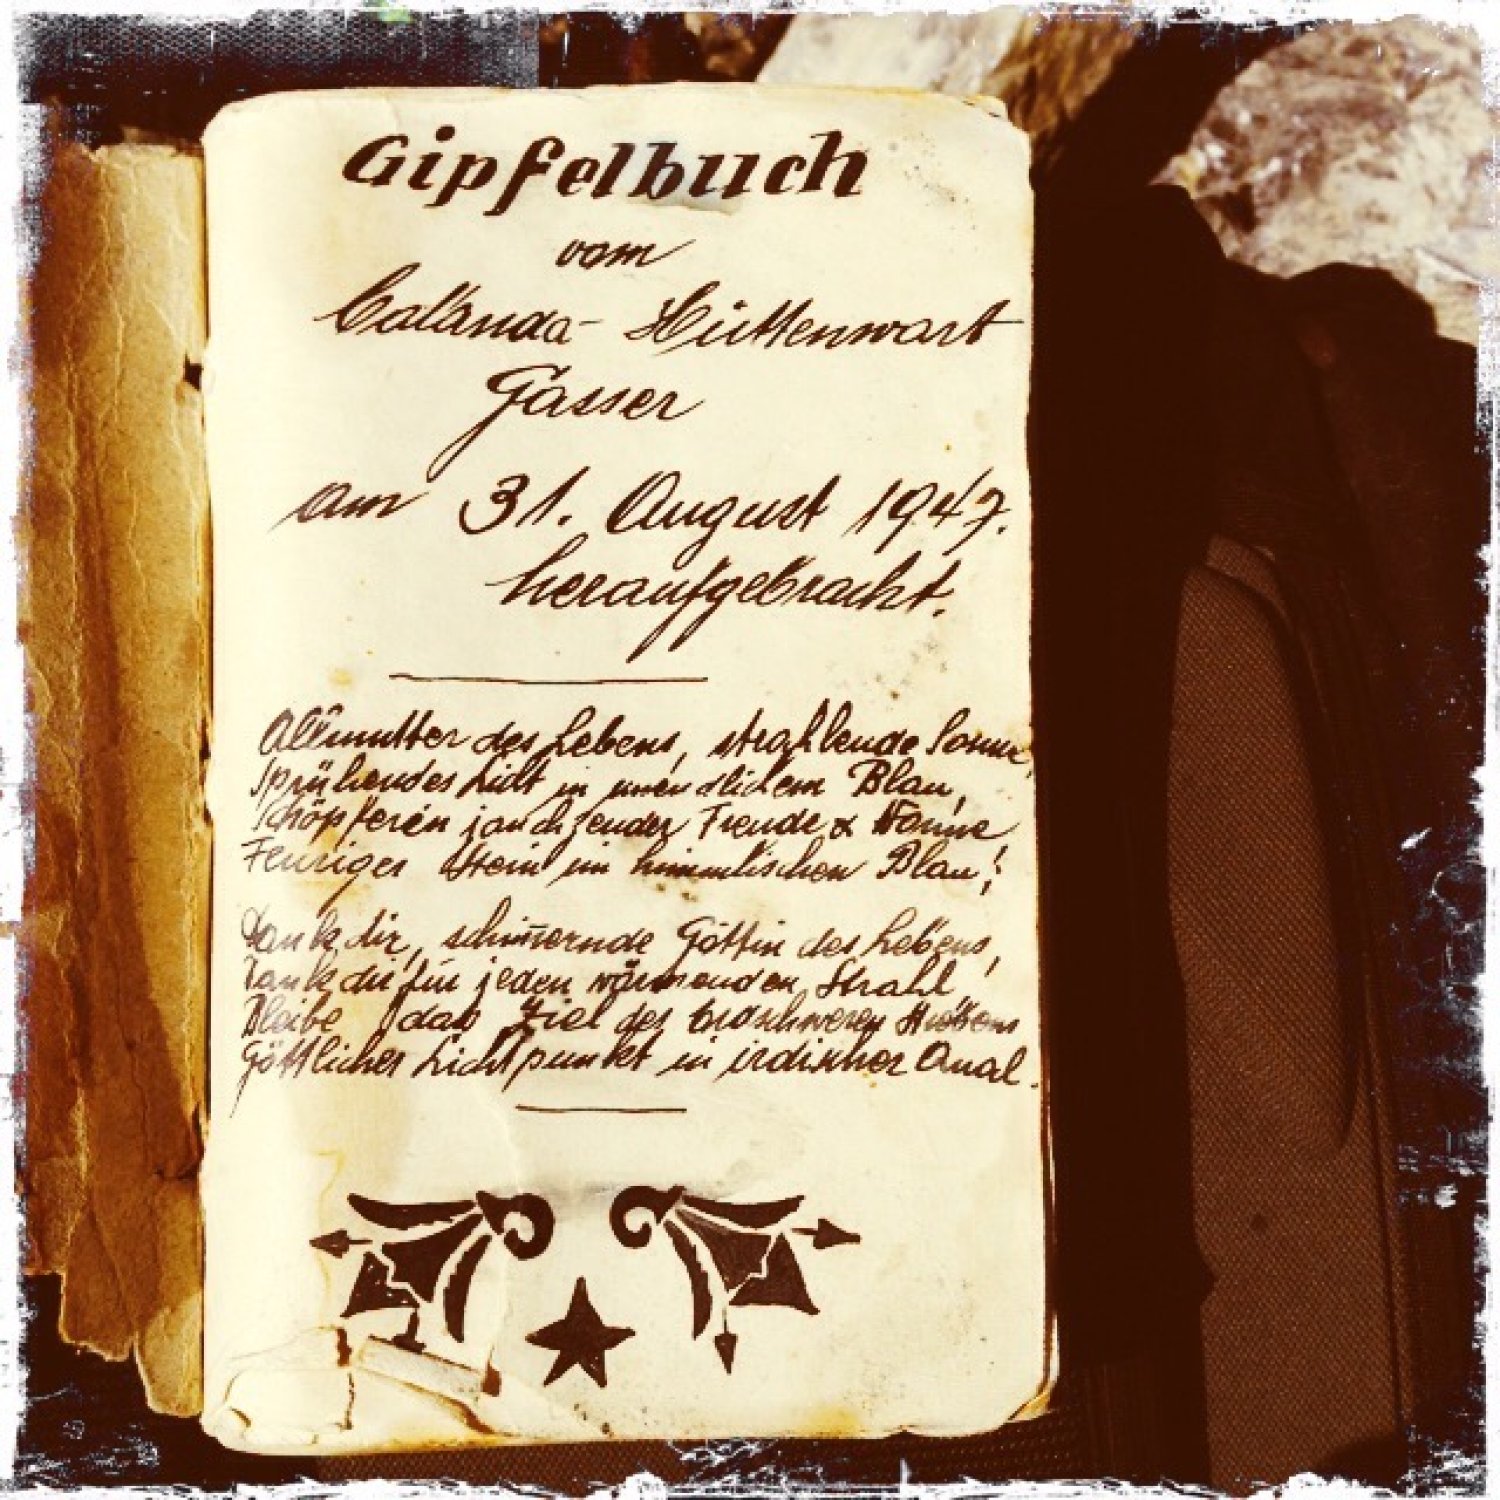 Gipfelbuch
vom
Calanda- Hüttenwart
Gasser
am 31. August 1947.
heraufgebracht.
Allmutter des Lebens, strahlende Sonne,
Sprühendes Licht in unendlichem Blau,
Schöpferin jauchzender Freude & Wonne
Feuriger Stein im himmlischen Blau;
Dank dir, schimernde Göttin des Lebens,
Dank dir für jeden wärmenden Strahl
Bleibe das Ziel des erdschweren Strebens
Göttlicher Lichtpunkt in irdischer Qual.